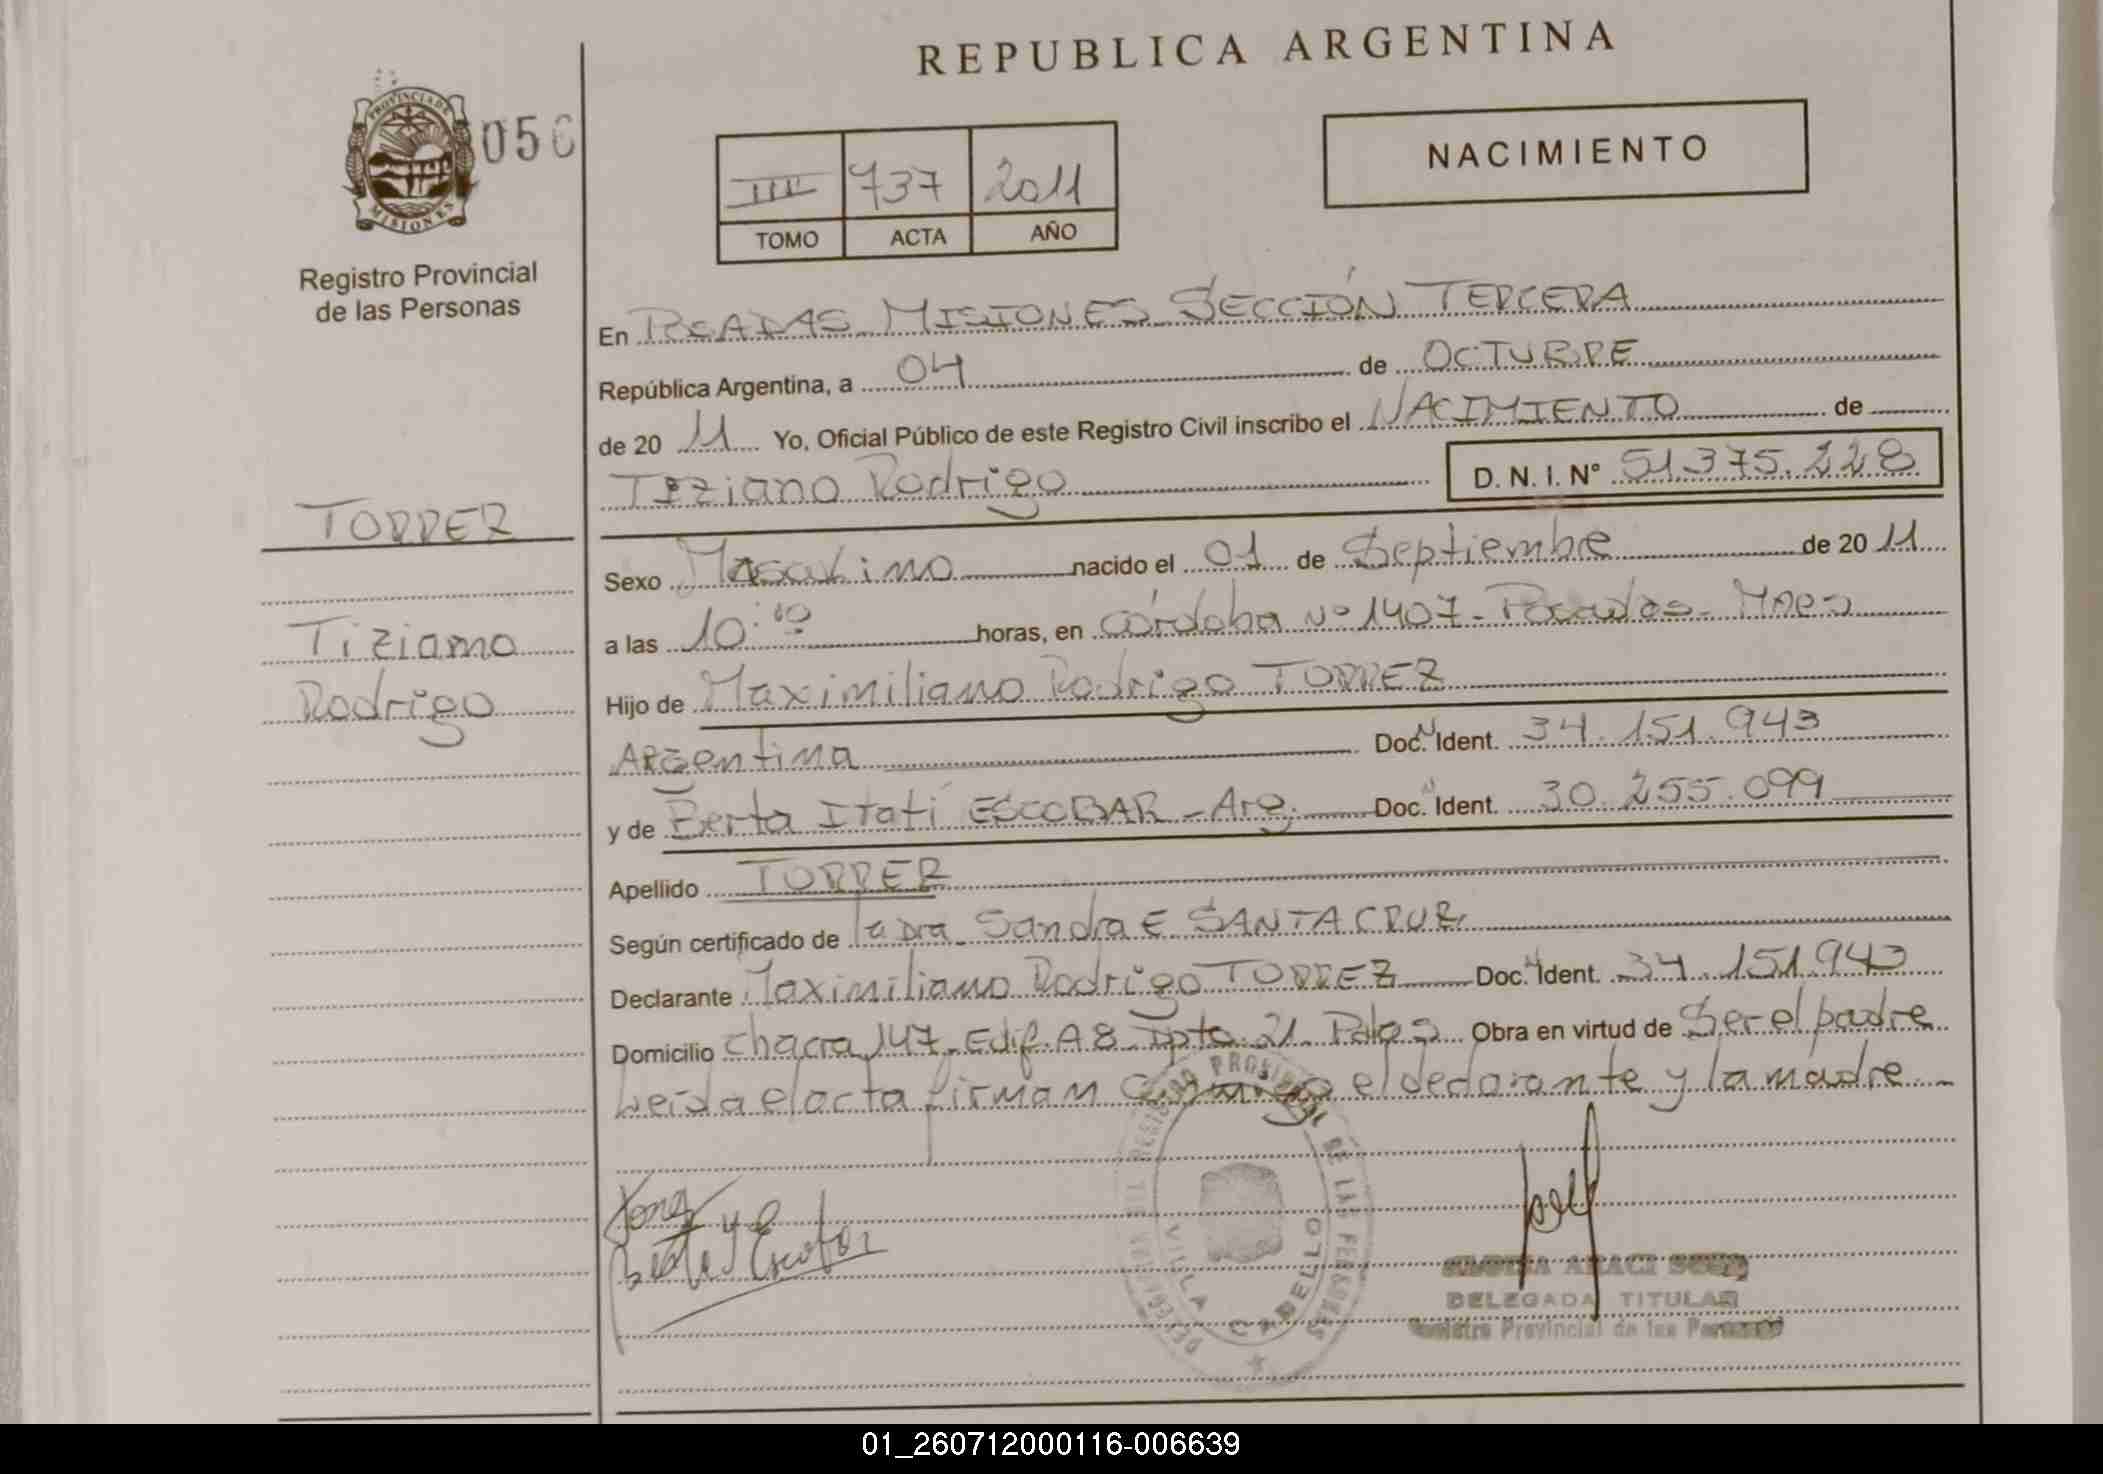 REPUBLICA ARGENTINA
PROVINCIA DE MISIONES
056
Registro Provincial
de las Personas
NACIMIENTO
IIII 737 2011
TOMO ACTA AÑO
En POSADAS MISIONES SECCIÓN TERCERA
República Argentina, a 04 de OCTUBRE
de 20 11 Yo, Oficial Público de este Registro Civil inscribo el NACIMIENTO de
Tiziano Rodrigo D. N. I. N° 51.375.228
TORREZ
Tiziano
Rodrigo
Sexo Masculino nacido el 01 de Septiembre de 20 11
a las 10:10 horas, en Córdoba Nº 1407 - Posadas - Mnes
Hijo de Maximiliano Rodrigo TORREZ
Argentina Doc. Ident. 34.151.943
y de Berta Itatí ESCOBAR - Arg. Doc. Ident. 30.255.099
Apellido TORREZ
Según certificado de la Dra. Sandra E SANTA CRUZ
Declarante Maximiliano Rodrigo TORREZ Doc. Ident. 34.151.943
Domicilio Chacra 147 - Edif. A 8 Dpto. 21 - Pdas Obra en virtud de Ser el padre
Leída el acta firman conmigo el declarante y la madre
REGISTRO PROVINCIAL DE LAS PERSONAS
VILLA CABELLO
Escobar
ARACI
DELEGADA TITULAR
Registro Provincial de las Personas
01_260712000116-006639